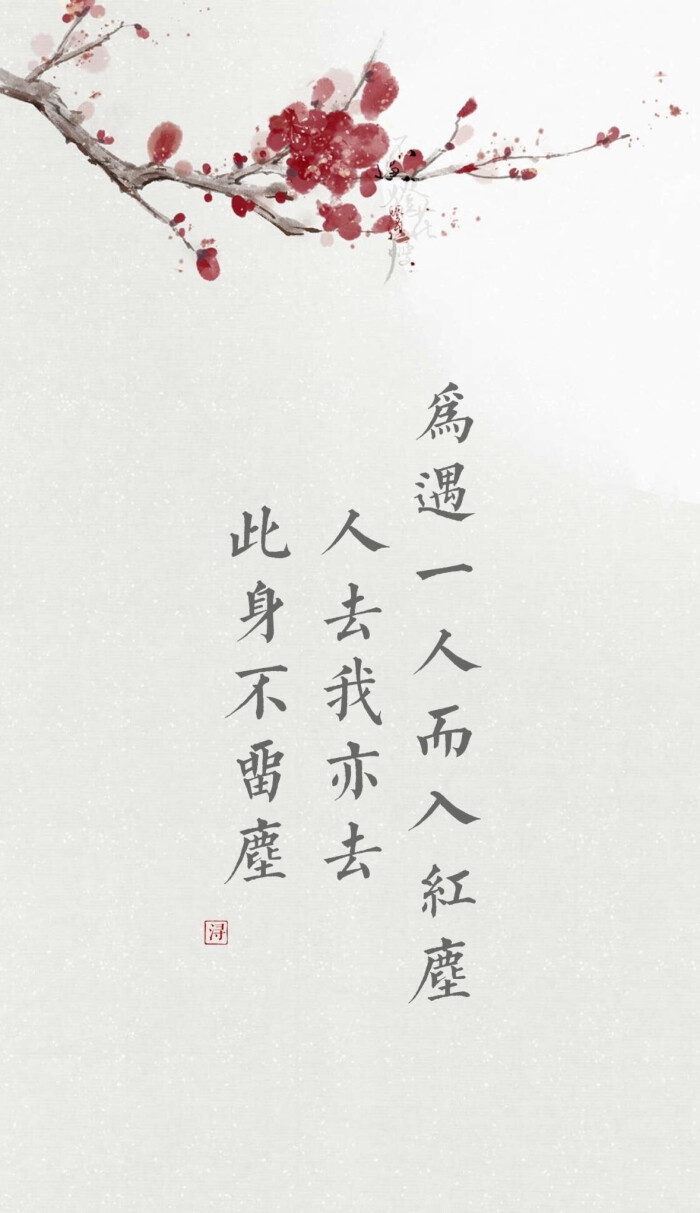 爲遇一人而入紅塵
人去我亦去
此身不畱塵
浔